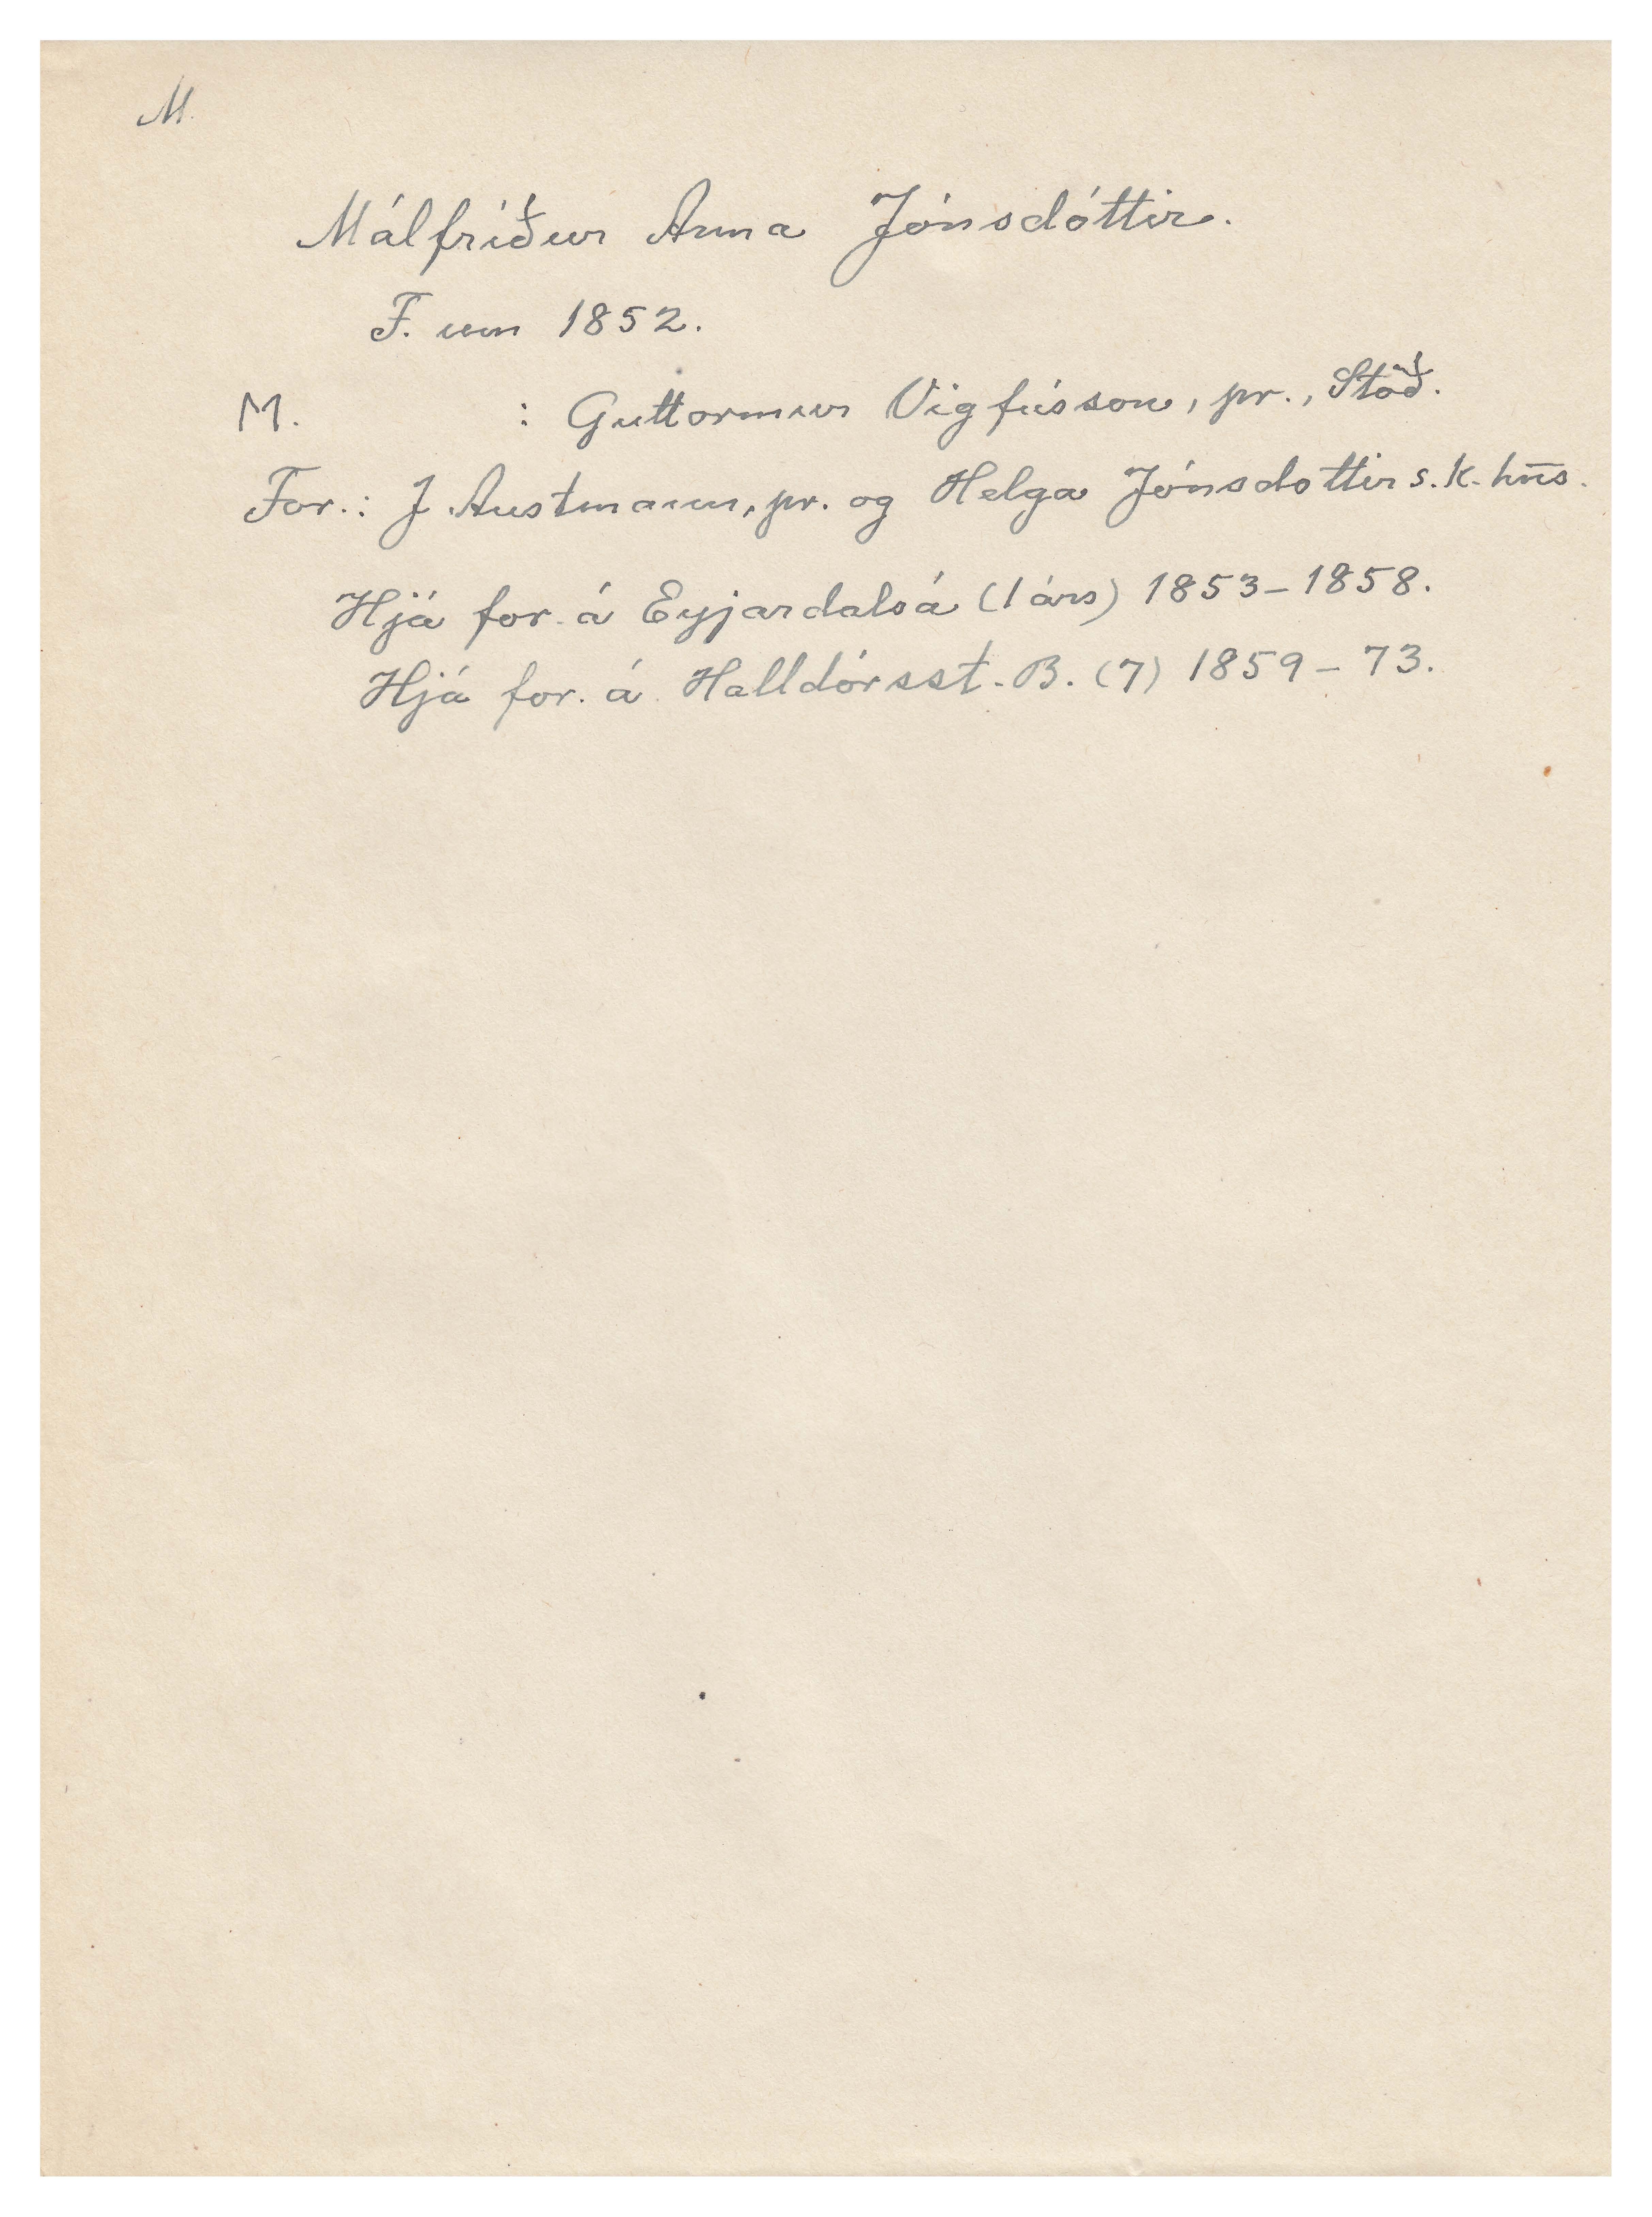 M.
Málfríður Anna Jónsdóttir.
F. um 1852.
M. : Guttormur Vigfússon, pr., Stöð.
For.: J. Austmann, pr. og Helga Jónsdottir s.k. hn̄s.
Hjá for. á Eyjardalsá (1 árs) 1853-1858.
Hjá for. á Halldórsst. B. (7) 1859-73.